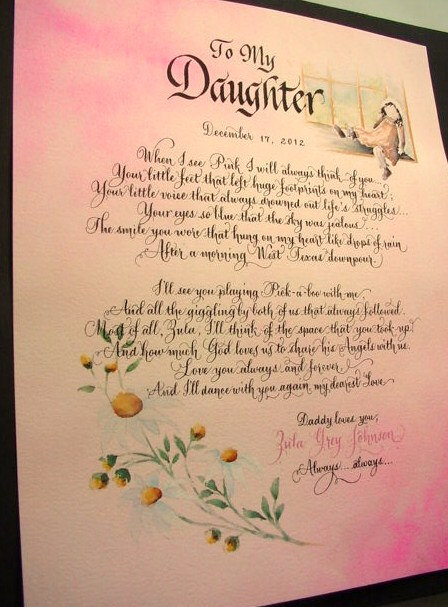 To My
Daughter
December 17, 2012
When I see Pink I will always think of you
Your little feet that left huge footprints on my heart;
Your little voice that always drowned out life's struggles...
Your eyes so blue that the sky was jealous...
The smile you wore that hung on my heart like drops of rain
After a morning West Texas downpour
I'll see you playing Pick-a-boo with me,
And all the giggling by both of us that always followed.
Most of all, Zula, I'll think of the space that you took up
And how much God loves us to share his Angels with us.
Love you always and forever
And I'll dance with you again my dearest Love
Daddy loves you,
Zula Grey Johnson
Always... always...